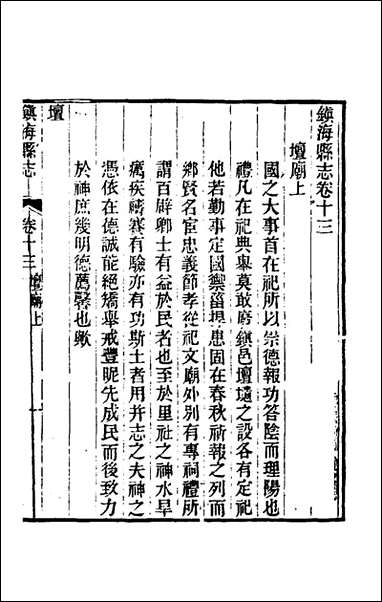 鎮海縣志卷十三
壇廟上
國之大事首在祀所以崇德報功答陰而理陽也
禮凡在祀典舉莫敢廢鎮邑壇壝之設各有定祀
他若勤事定國禦菑捍患固在春秋祈報之列而
鄉賢名宦忠義節孝從祀文廟外別有專祠禮所
謂百辟卿士有益於民者也至於里社之神水旱
癘疾禱賽有驗亦有功斯土者用并志之夫神之
憑依在德誠能絕矯舉戒豐昵先成民而後致力
於神庶幾明德薦馨也歟
壇
鎮海縣志
卷十三 壇廟上